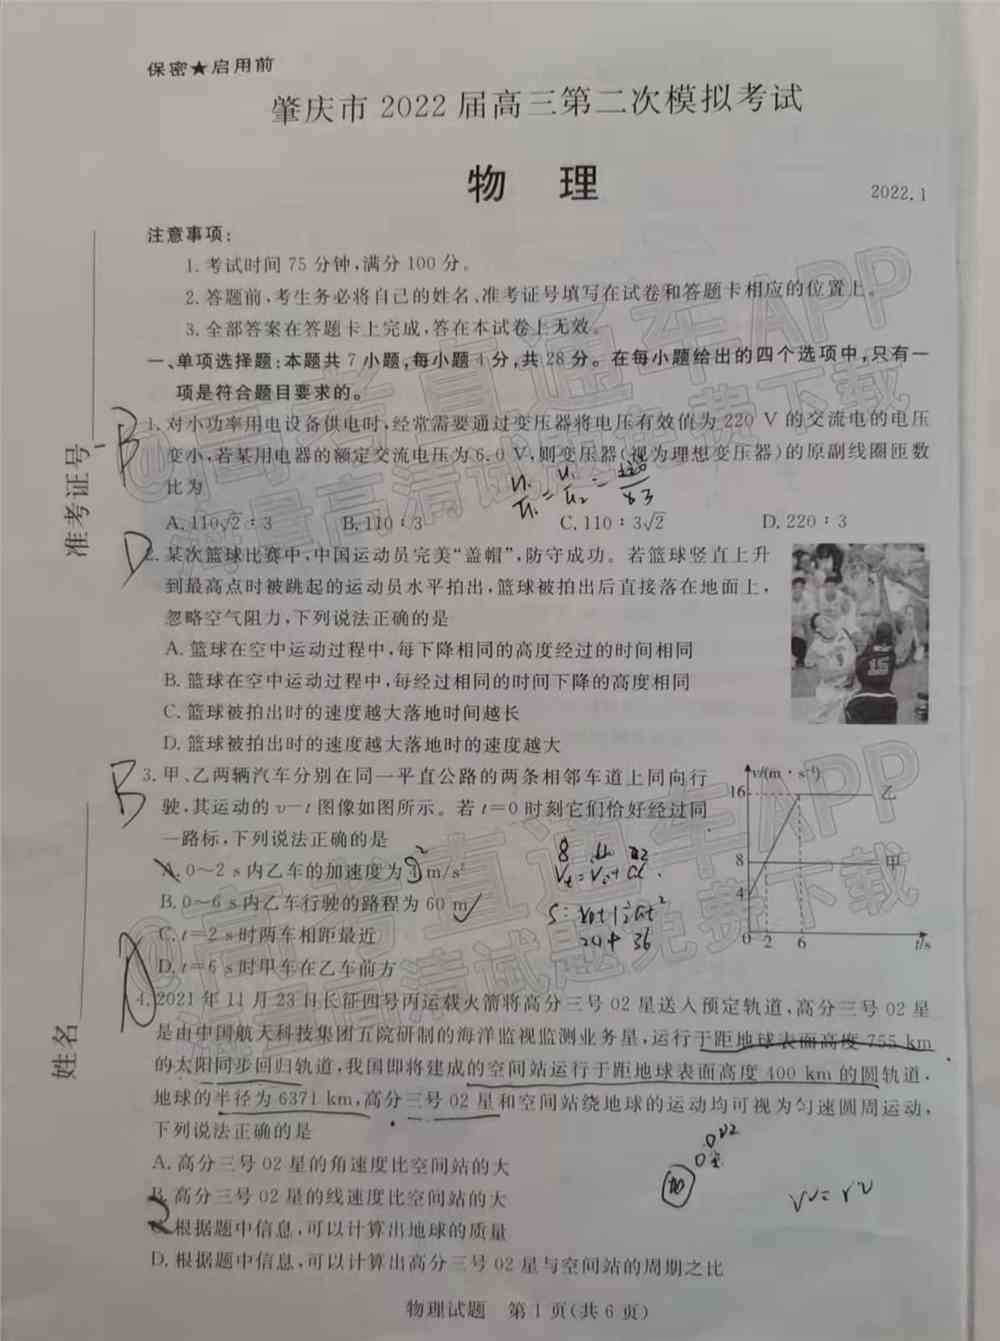 保密★启用前
肇庆市 2022 届高三第二次模拟考试
物 理
2022.1
注意事项:
1. 考试时间 75 分钟,满分 100 分。
2. 答题前,考生务必将自己的姓名、准考证号填写在试卷和答题卡相应的位置上。
3. 全部答案在答题卡上完成,答在本试卷上无效。
一、单项选择题:本题共 7 小题,每小题 4 分,共 28 分。在每小题给出的四个选项中,只有一
项是符合题目要求的。
B
1. 对小功率用电设备供电时,经常需要通过变压器将电压有效值为 220 V 的交流电的电压
变小,若某用电器的额定交流电压为 6.0 V,则变压器(视为理想变压器)的原副线圈匝数
比为
A. 110√2∶3 B. 110∶3 C. 110∶3√2 D. 220∶3
D
2. 某次篮球比赛中,中国运动员完美“盖帽”,防守成功。若篮球竖直上升
到最高点时被跳起的运动员水平拍出,篮球被拍出后直接落在地面上,
忽略空气阻力,下列说法正确的是
A. 篮球在空中运动过程中,每下降相同的高度经过的时间相同
B. 篮球在空中运动过程中,每经过相同的时间下降的高度相同
C. 篮球被拍出时的速度越大落地时间越长
D. 篮球被拍出时的速度越大落地时的速度越大
15
B
3. 甲、乙两辆汽车分别在同一平直公路的两条相邻车道上同向行
驶,其运动的 v—t 图像如图所示。若 t=0 时刻它们恰好经过同
一路标,下列说法正确的是
A. 0～2 s 内乙车的加速度为 1 m/s²
B. 0～6 s 内乙车行驶的路程为 60 m
C. t=2 s 时两车相距最近
D. t=6 s 时甲车在乙车前方
v/(m·s⁻¹)
16
乙
8
甲
4
0 2 6 t/s
4. 2021 年 11 月 23 日长征四号丙运载火箭将高分三号 02 星送入预定轨道,高分三号 02 星
是由中国航天科技集团五院研制的海洋监视监测业务星,运行于距地球表面高度 755 km
的太阳同步回归轨道,我国即将建成的空间站运行于距地球表面高度 400 km 的圆轨道,
地球的半径为 6371 km,高分三号 02 星和空间站绕地球的运动均可视为匀速圆周运动,
下列说法正确的是
A. 高分三号 02 星的角速度比空间站的大
B. 高分三号 02 星的线速度比空间站的大
C. 根据题中信息,可以计算出地球的质量
D. 根据题中信息,可以计算出高分三号 02 星与空间站的周期之比
物理试题 第 1 页(共 6 页)
准考证号
姓名
@高考直通车APP
海量高清试题免费下载
@高考直通车APP
海量高清试题免费下载